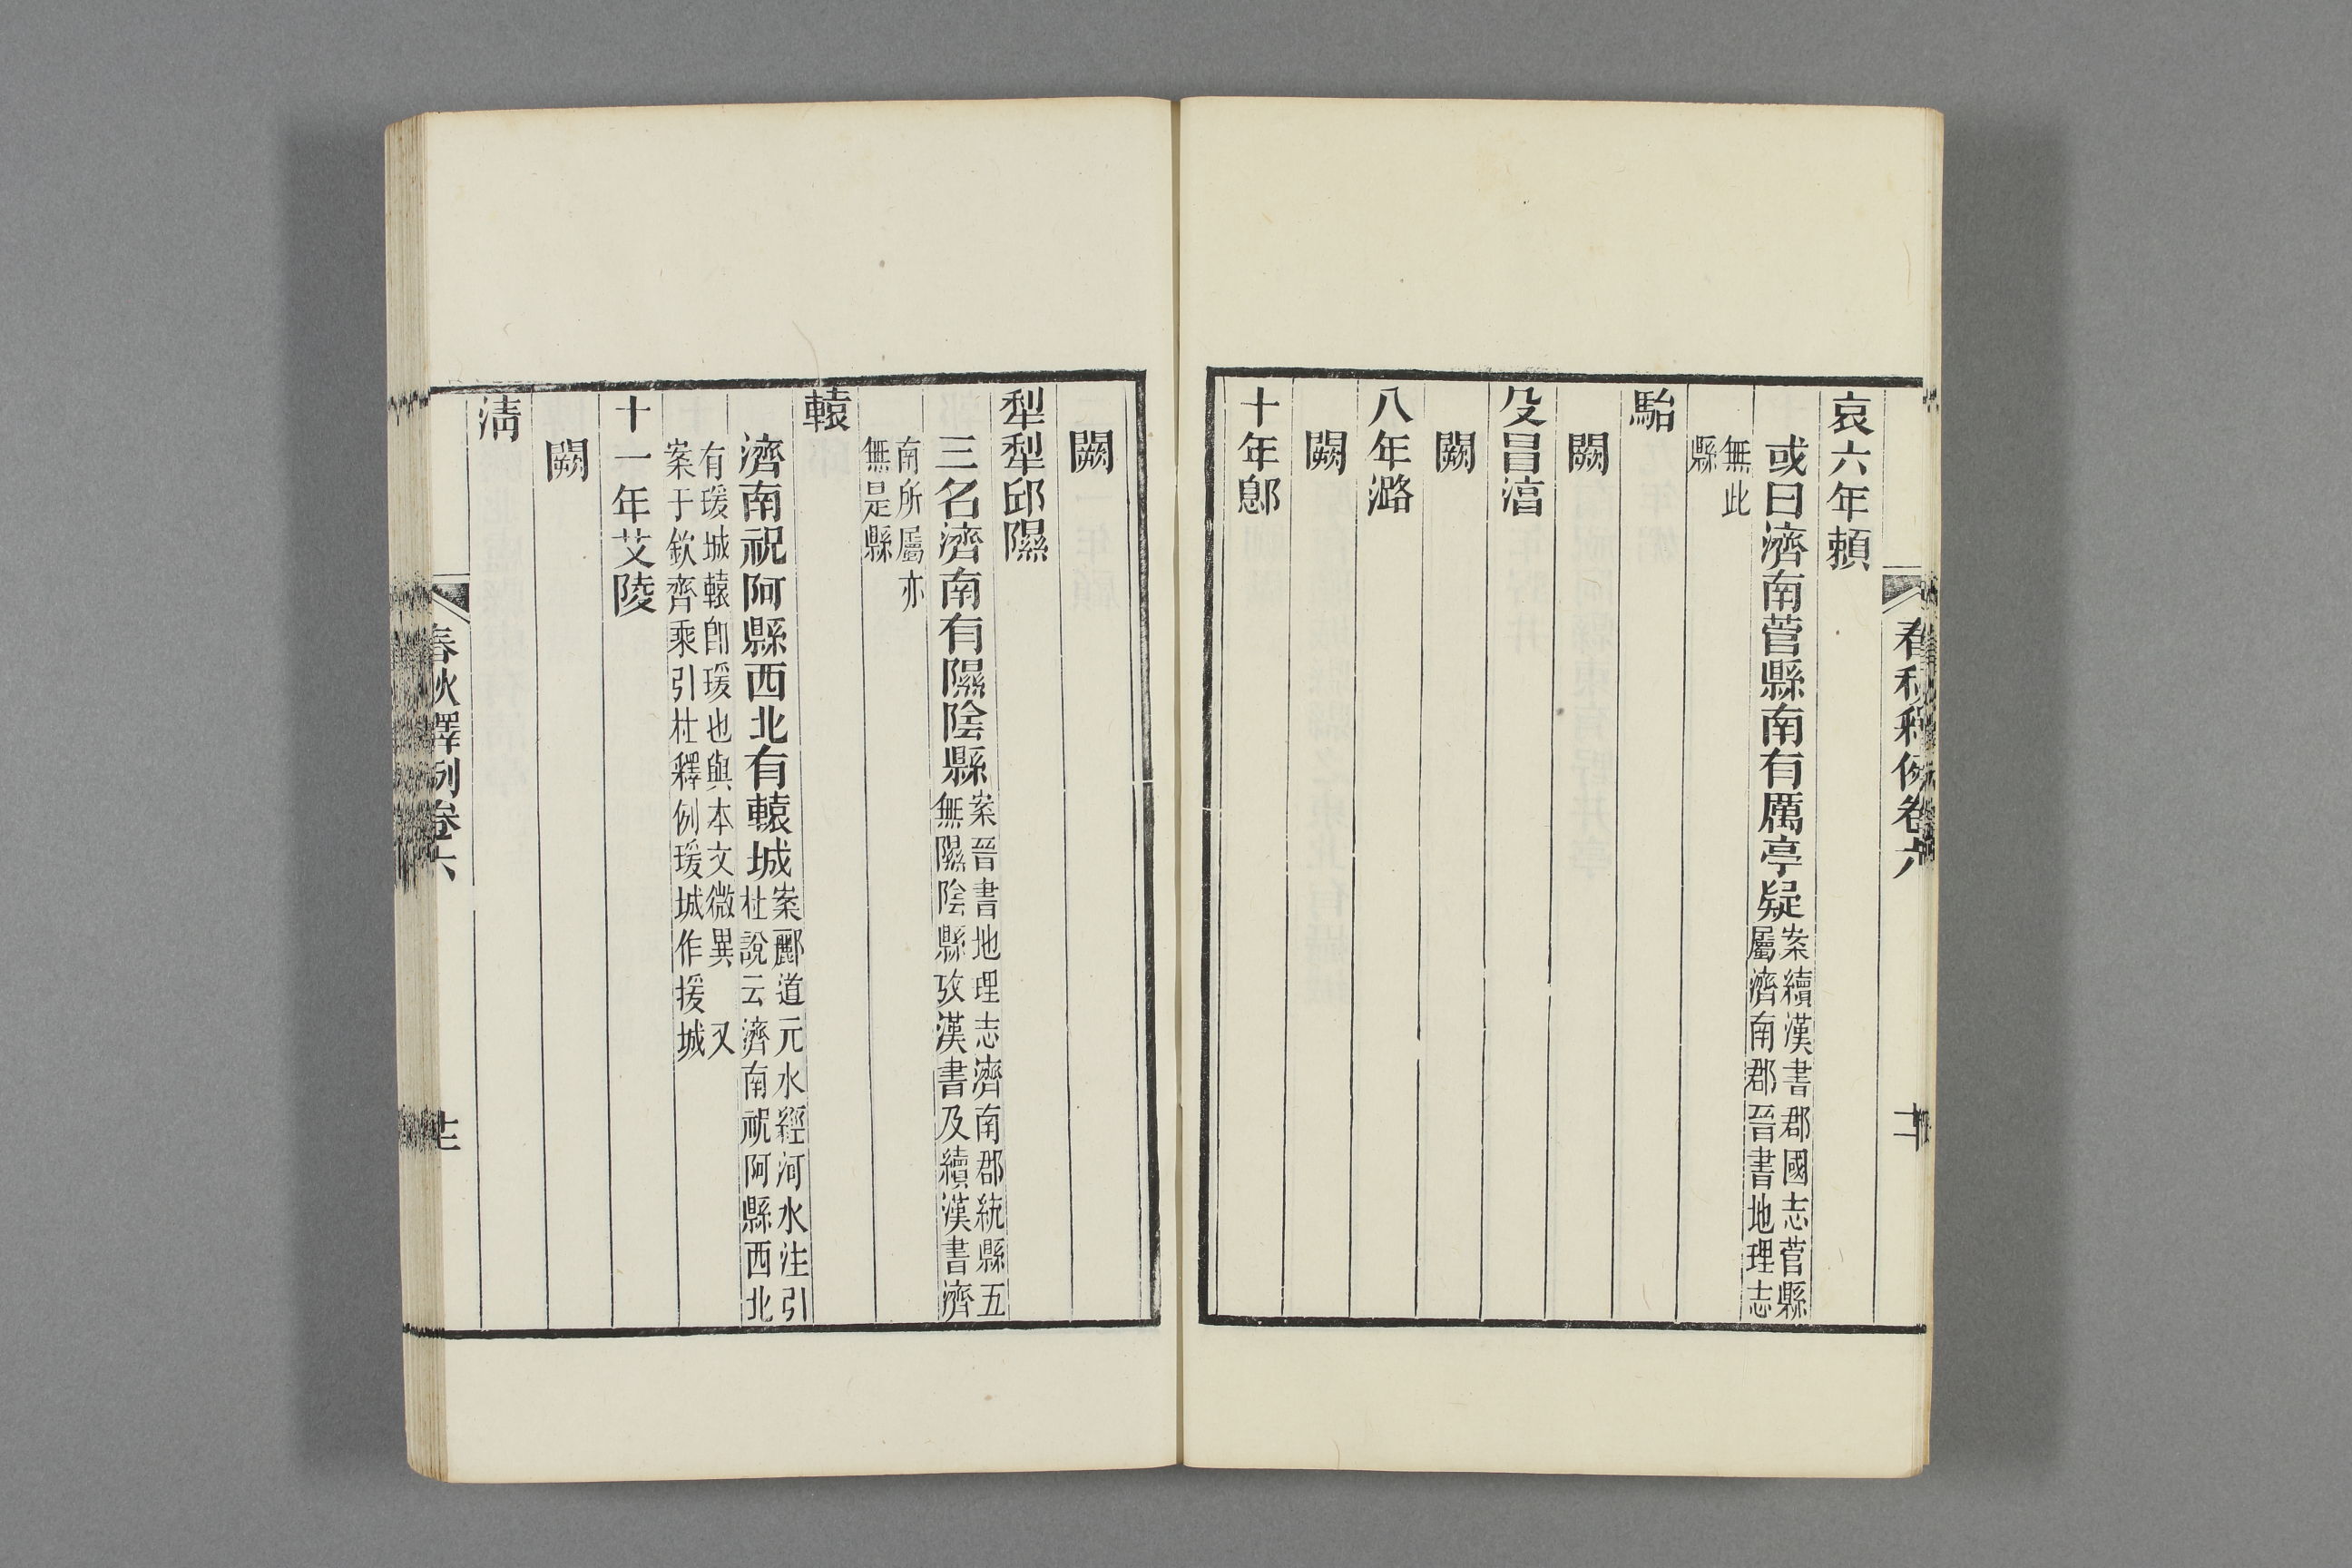 春秋釋例卷六
哀六年頼
或曰濟南菅縣南有厲亭疑案續漢書郡國志菅縣
屬濟南郡晉書地理志
無此
縣
駘
闕
殳冒淳
闕
八年潞
闕
十年郎
闕
犁犁邱隰
三名濟南有隰陰縣案晉書地理志濟南郡統縣五
無隰陰縣攷漢書及續漢書濟
南所屬亦
無是縣
轅
濟南祝阿縣西北有轅城案酈道元水經河水注引
杜說云濟南祝阿縣西北
有瑗城轅卽瑗也與本文微異 又
案于欽齊乘引杜釋例瑗城作援城
十一年艾陵
闕
淸
春秋釋例卷六